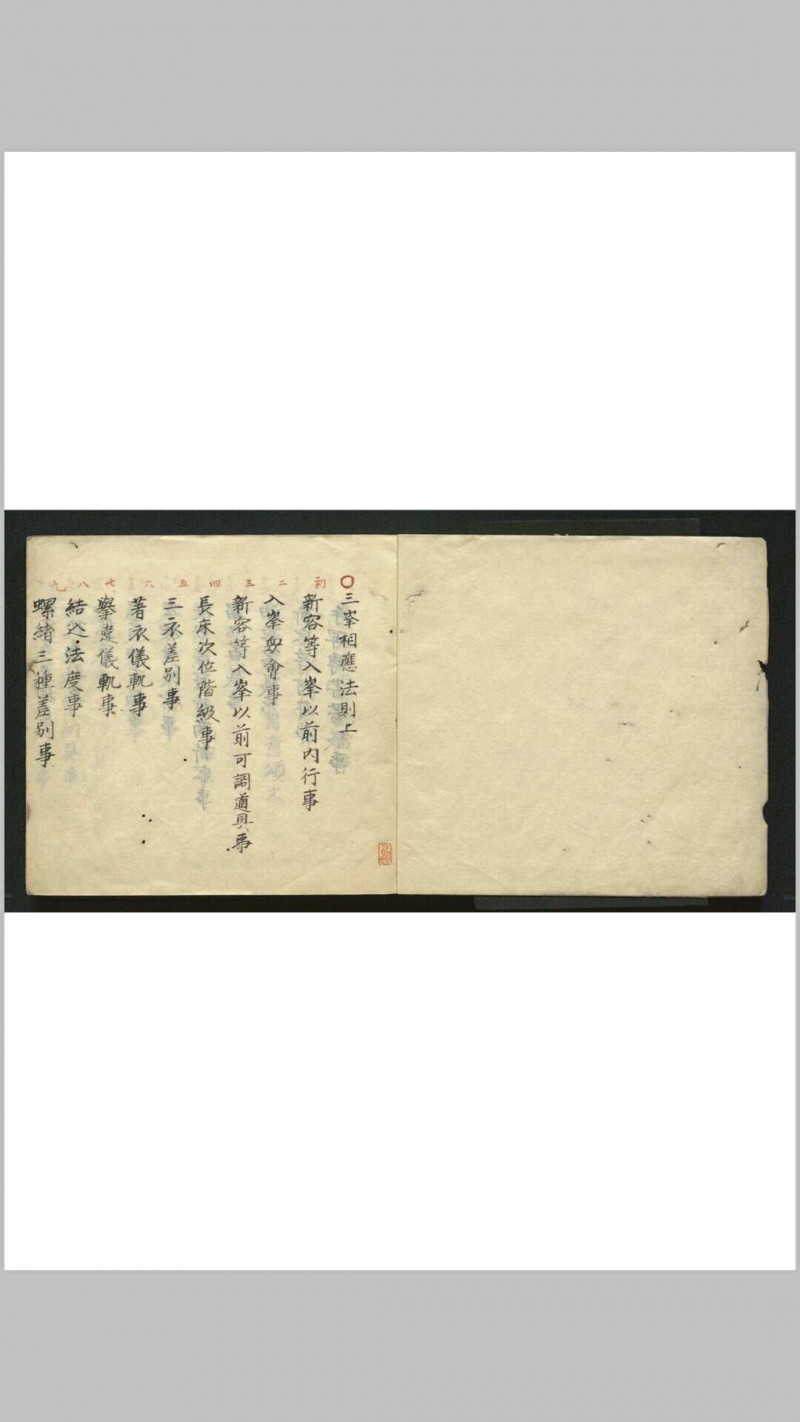 〇三峯相應法則上
初 新容等入峯以前内行事
二 入峯㝡會事
三 新容等入峯以前可調道具事
四 長床次位階級事
五 三衣差別事
六 著衣儀軌事
七 擧螺儀軌事
八 結込法度事
九 螺緒三種差別事